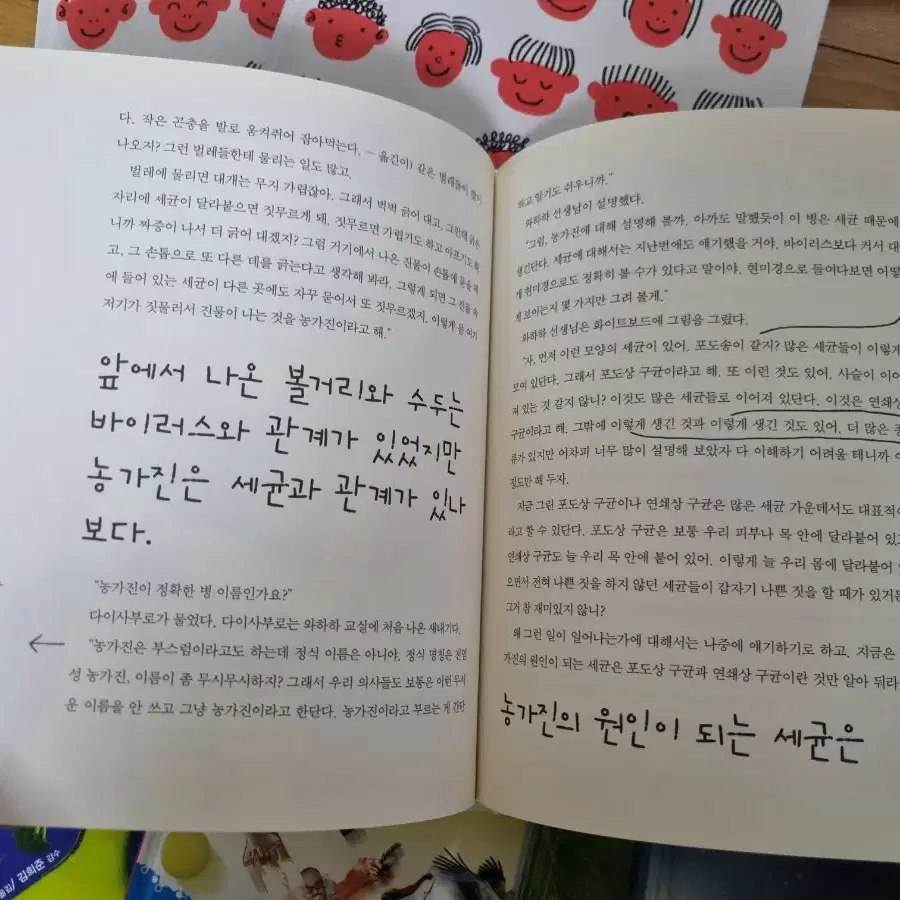 다. 작은 곤충을 발로 움켜쥐어 잡아먹는다. – 옮긴이) 같은 벌레들이 많이
나오지? 그런 벌레들한테 물리는 일도 많고.
벌레에 물리면 대개는 무지 가렵잖아. 그래서 벅벅 긁어 대고, 그런데 긁은
자리에 세균이 달라붙으면 짓무르게 돼. 짓무르면 가렵기도 하고 아프기도 하
니까 짜증이 나서 더 긁어 대겠지? 그럼 거기에서 나온 진물이 손톱에 묻을 테
고, 그 손톱으로 또 다른 데를 긁는다고 생각해 봐라. 그렇게 되면 그 진물 속
에 들어 있는 세균이 다른 곳에도 자꾸 묻어서 또 짓무르겠지. 이렇게 몸 여기
저기가 짓물러서 진물이 나는 것을 농가진이라고 해."
앞에서 나온 볼거리와 수두는
바이러스와 관계가 있었지만
농가진은 세균과 관계가 있나
보다.
"농가진이 정확한 병 이름인가요?"
다이사부로가 물었다. 다이사부로는 와하하 교실에 처음 나온 새내기다.
"농가진은 부스럼이라고도 하는데 정식 이름은 아니야. 정식 명칭은 전염
성 농가진, 이름이 좀 무시무시하지? 그래서 우리 의사들도 보통은 이런 무서
운 이름을 안 쓰고 그냥 농가진이라고 한단다. 농가진이라고 부르는 게 간단
하고 알기도 쉬우니까."
와하하 선생님이 설명했다.
"그럼, 농가진에 대해 설명해 볼까. 아까도 말했듯이 이 병은 세균 때문에
생긴단다. 세균에 대해서는 지난번에도 얘기했을 거야. 바이러스보다 커서 대
게 현미경으로도 정확히 볼 수가 있다고 말이야. 현미경으로 들여다보면 어떻
게 보이는지 몇 가지만 그려 볼게."
와하하 선생님은 화이트보드에 그림을 그렸다.
"자, 먼저 이런 모양의 세균이 있어. 포도송이 같지? 많은 세균들이 이렇게
모여 있단다. 그래서 포도상 구균이라고 해. 또 이런 것도 있어. 사슬이 이어
져 있는 것 같지 않니? 이것도 많은 세균들로 이어져 있단다. 이것은 연쇄상
구균이라고 해. 그밖에 이렇게 생긴 것과 이렇게 생긴 것도 있어. 더 많은 종
류가 있지만 어차피 너무 많이 설명해 보았자 다 이해하기 어려울 테니까 이
정도만 해 두자.
지금 그린 포도상 구균이나 연쇄상 구균은 많은 세균 가운데서도 대표적이
라고 할 수 있단다. 포도상 구균은 보통 우리 피부나 목 안에 달라붙어 있고
연쇄상 구균도 늘 우리 목 안에 붙어 있어. 이렇게 늘 우리 몸에 달라붙어 있
으면서 전혀 나쁜 짓을 하지 않던 세균들이 갑자기 나쁜 짓을 할 때가 있거든
그거 참 재미있지 않니?
왜 그런 일이 일어나는가에 대해서는 나중에 얘기하기로 하고, 지금은
가진의 원인이 되는 세균은 포도상 구균과 연쇄상 구균이란 것만 알아 둬라
농가진의 원인이 되는 세균은
옮김/ 김희준 감수